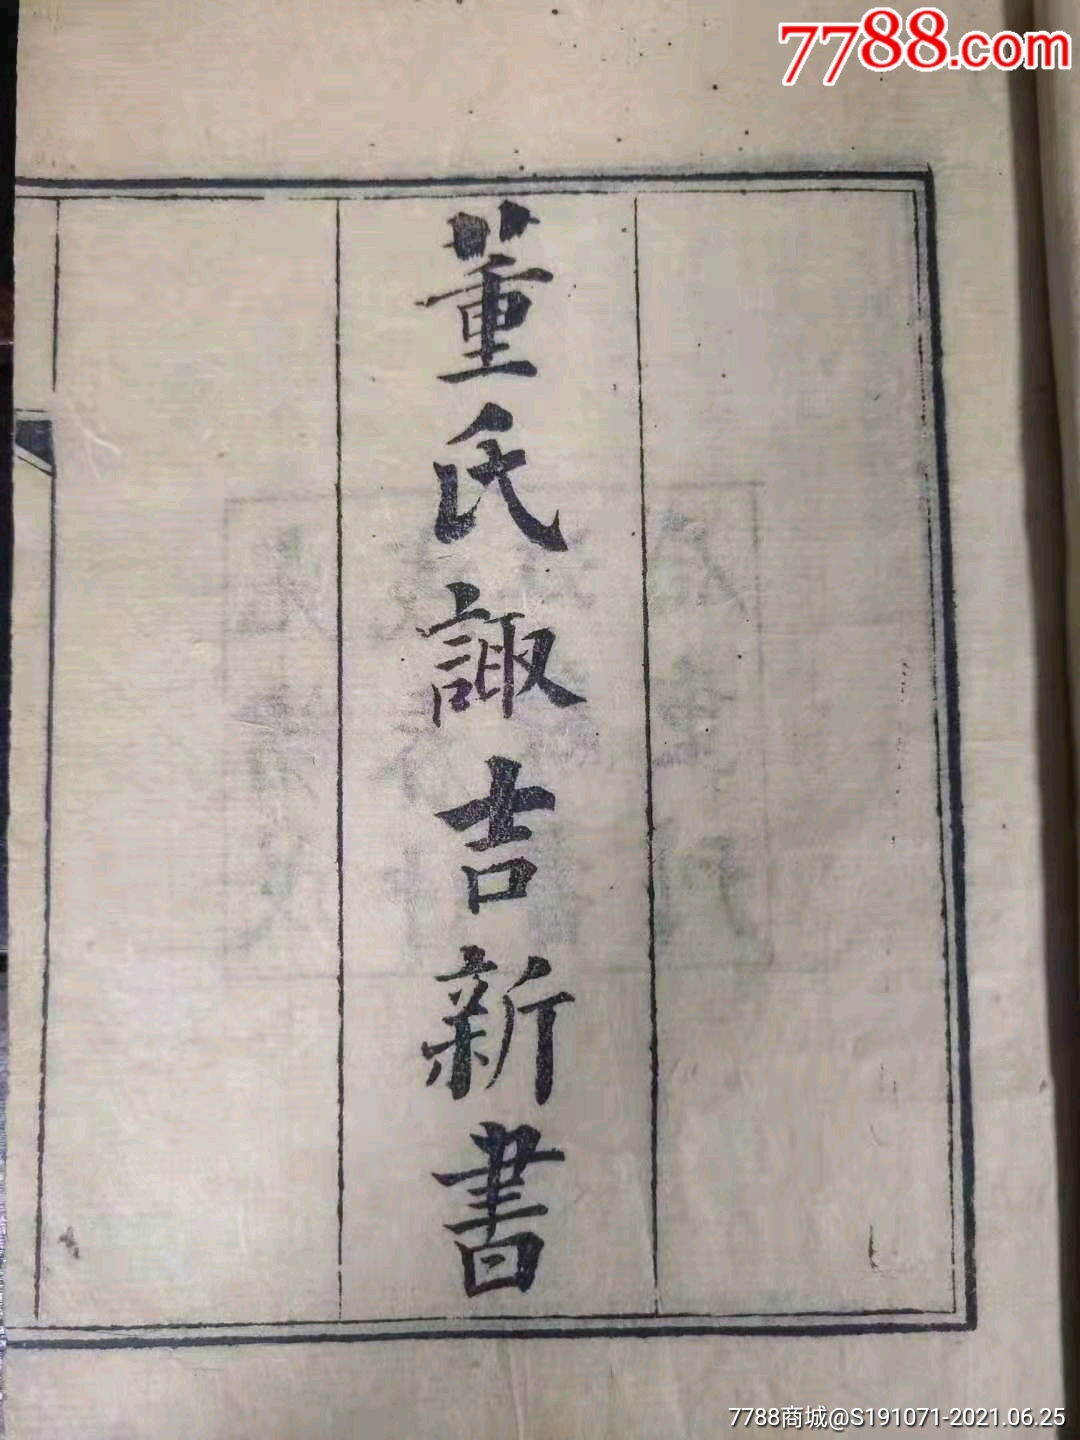 7788.com
董氏諏吉新書
7788商城@S191071-2021.06.25